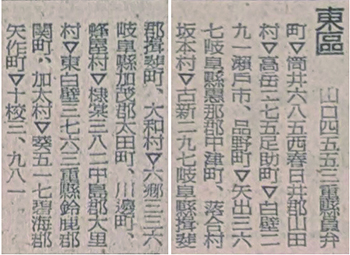 東區 山口四五五三重縣員弁
町▽筒井六八五西春日井郡山田
村▽高岳二七五足助町▽白壁二
九一瀨戸市、品野町▽矢出三六
七岐阜縣惠那郡中津町、落合村
坂本村▽古新二九七岐阜縣揖斐
郡揖斐町、大和村▽六郷三三六
岐阜縣加茂郡太田町、川邊町、
蜂屋村▽棣棠三八二中島郡大里
村▽東白壁三七六三重縣鈴鹿郡
關町、加太村▽葵五一七碧海郡
矢作町▽十校三、九八一